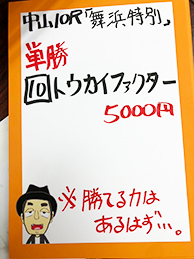 中山10R「舞浜特別」
単勝
10トウカイファクター
5000円
※勝てる力は
あるはず…。